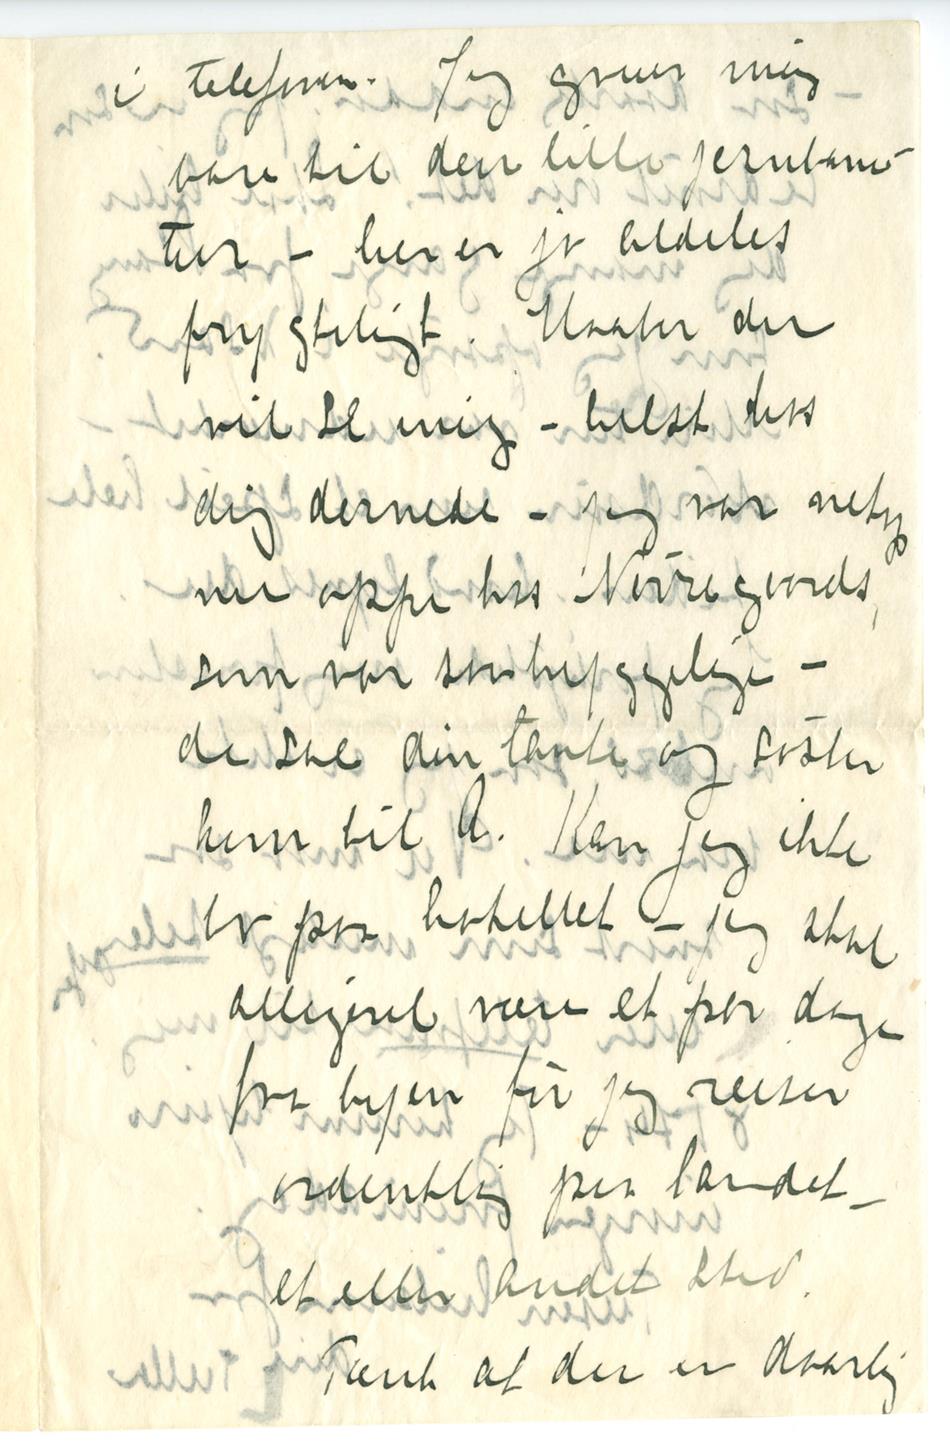 i telefonen. Jeg gruer mig
bare til den lille jernbane-
tur – her er jo aldeles
frygteligt. Haaber du
vil se mig – helst hos
dig dernede – jeg var netop
nu oppe hos Nörregaards,
som var saa hyggelige –
de sae din tante og søster
kom til Å. Kan jeg ikke
bo paa hotellet – jeg skal
alligevel være et par dage
fra byen før jeg reiser
ordentlig paa landet –
et eller andet sted.
Tænk at du er daarlig